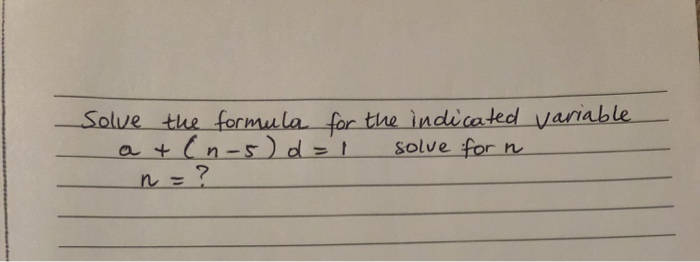 Solve the formula for the indicated variable
a + (n-5) d = 1 solve for n
n = ?